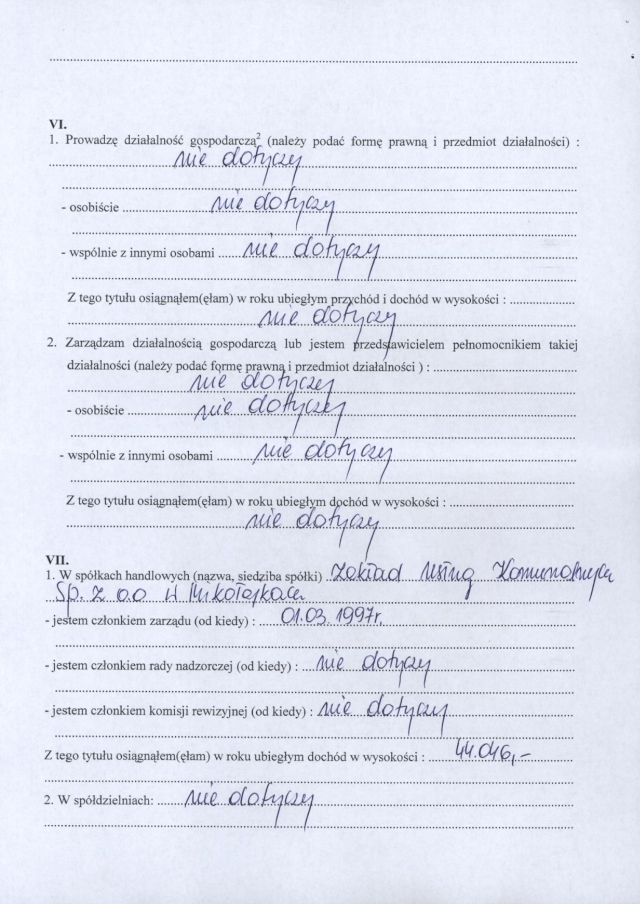 VI.
1. Prowadzę działalność gospodarczą2 (należy podać formę prawną i przedmiot działalności) :
nie dotyczy
- osobiście nie dotyczy
- wspólnie z innymi osobami nie dotyczy
Z tego tytułu osiągnąłem(ęłam) w roku ubiegłym przychód i dochód w wysokości :
nie dotyczy
2. Zarządzam działalnością gospodarczą lub jestem przedstawicielem pełnomocnikiem takiej
działalności (należy podać formę prawną i przedmiot działalności ) :
nie dotyczy
- osobiście nie dotyczy
- wspólnie z innymi osobami nie dotyczy
Z tego tytułu osiągnąłem(ęłam) w roku ubiegłym dochód w wysokości :
nie dotyczy
VII.
1. W spółkach handlowych (nazwa, siedziba spółki) Zakład Usług Komunalnych
Sp. z o.o w Mikołajkach
- jestem członkiem zarządu (od kiedy) : 01.03.1997r.
- jestem członkiem rady nadzorczej (od kiedy) : nie dotyczy
- jestem członkiem komisji rewizyjnej (od kiedy) : nie dotyczy
Z tego tytułu osiągnąłem(ęłam) w roku ubiegłym dochód w wysokości : 44.046,-
2. W spółdzielniach: nie dotyczy